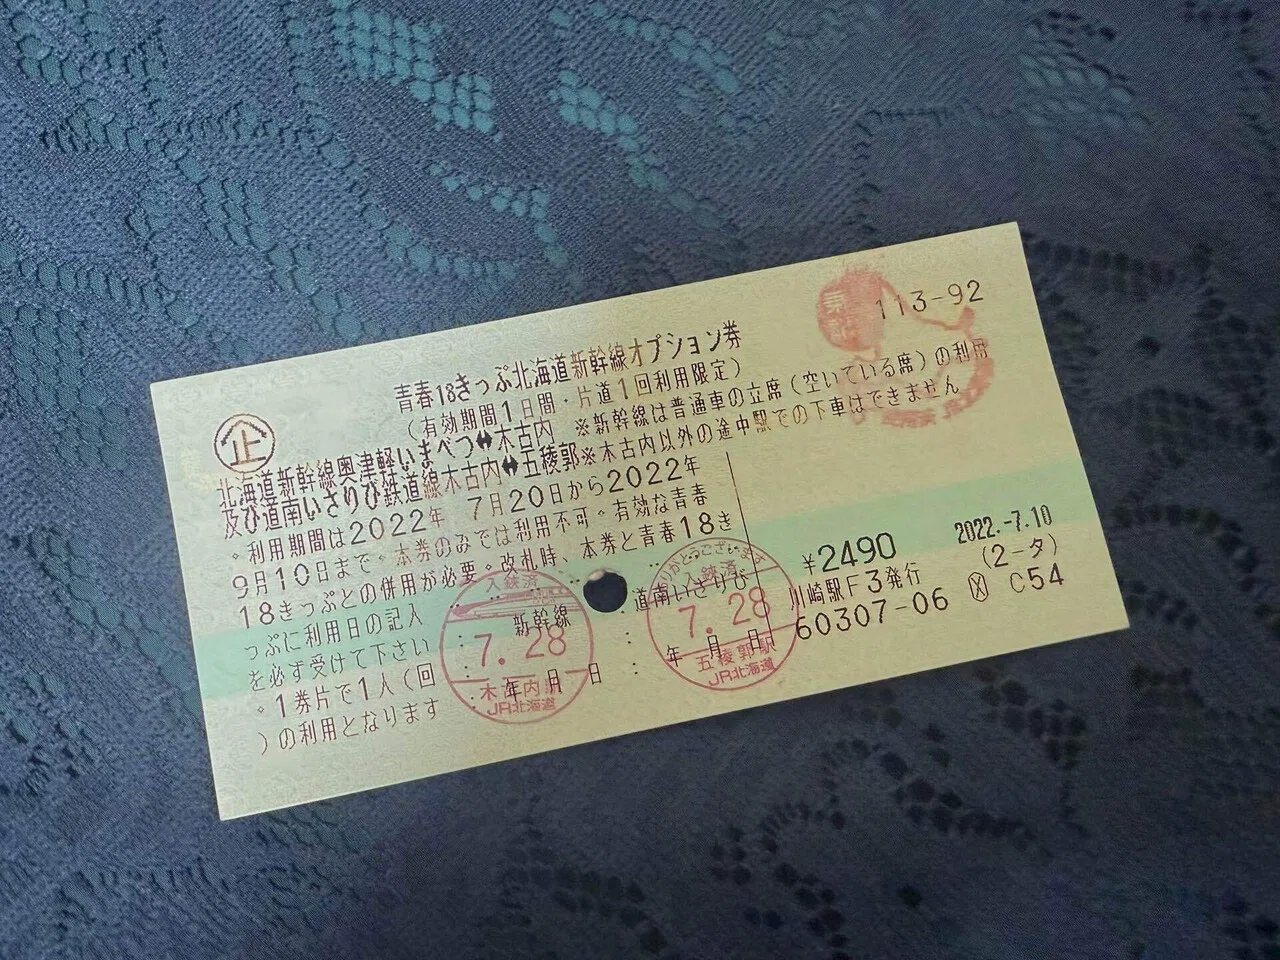 113-92
青春18きっぷ北海道新幹線オプション券
(有効期間1日間・片道1回利用限定)
企
北海道新幹線奥津軽いまべつ⇔木古内 ※新幹線は普通車の立席(空いている席)の利用
及び道南いさりび鉄道線木古内⇔五稜郭※木古内以外の途中駅での下車はできません
。利用期間は2022年 7月20日から2022年
9月10日まで。本券のみでは利用不可。有効な青春
18きっぷとの併用が必要。改札時、本券と青春18き
っぷに利用日の記入
を必ず受けて下さい
。1券片で1人(回
)の利用となります
新幹線
年 月 日
道南いさりび
年 月 日
入鋏済
7.28
木古内駅
JR北海道
ありがとうございます
入鋏済
7.28
五稜郭駅
JR北海道
¥2490
2022.-7.10
川崎駅F3発行
(2-タ)
60307-06 ㊀ C54